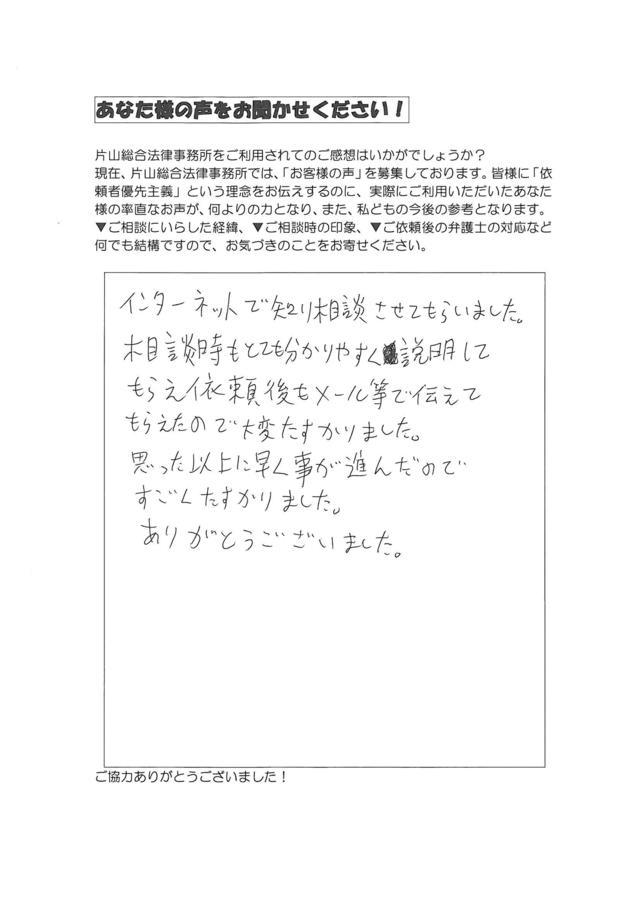 あなた様の声をお聞かせください！
片山総合法律事務所をご利用されてのご感想はいかがでしょうか？
現在、片山総合法律事務所では、「お客様の声」を募集しております。皆様に「依
頼者優先主義」という理念をお伝えするのに、実際にご利用いただいたあなた
様の率直なお声が、何よりの力となり、また、私どもの今後の参考となります。
▼ご相談にいらした経緯、▼ご相談時の印象、▼ご依頼後の弁護士の対応など
何でも結構ですので、お気づきのことをお寄せください。
インターネットで知り相談させてもらいました。
相談時もとても分かりやすく説明して
もらえ依頼後もメール等で伝えて
もらえたので大変たすかりました。
思った以上に早く事が進んだので
すごくたすかりました。
ありがとうございました。
ご協力ありがとうございました！